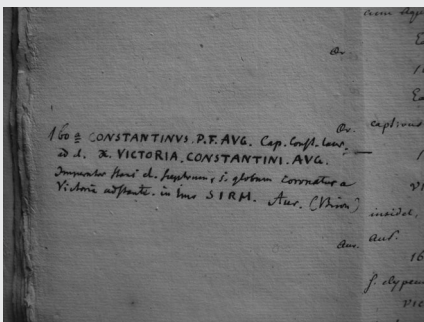 160 a CONSTANTINVS. P.F. AVG. Cap. Const. laur.
ad d. X. VICTORIA. CONSTANTINI. AVG.
Imperator stans d. s. globum coronatur a
Victoria adstante. in imo SIRM. Aur. (Biron)
Or.
Or.
Aur.
captivus
insidet,
auf.
16
f. clypeum
VIC